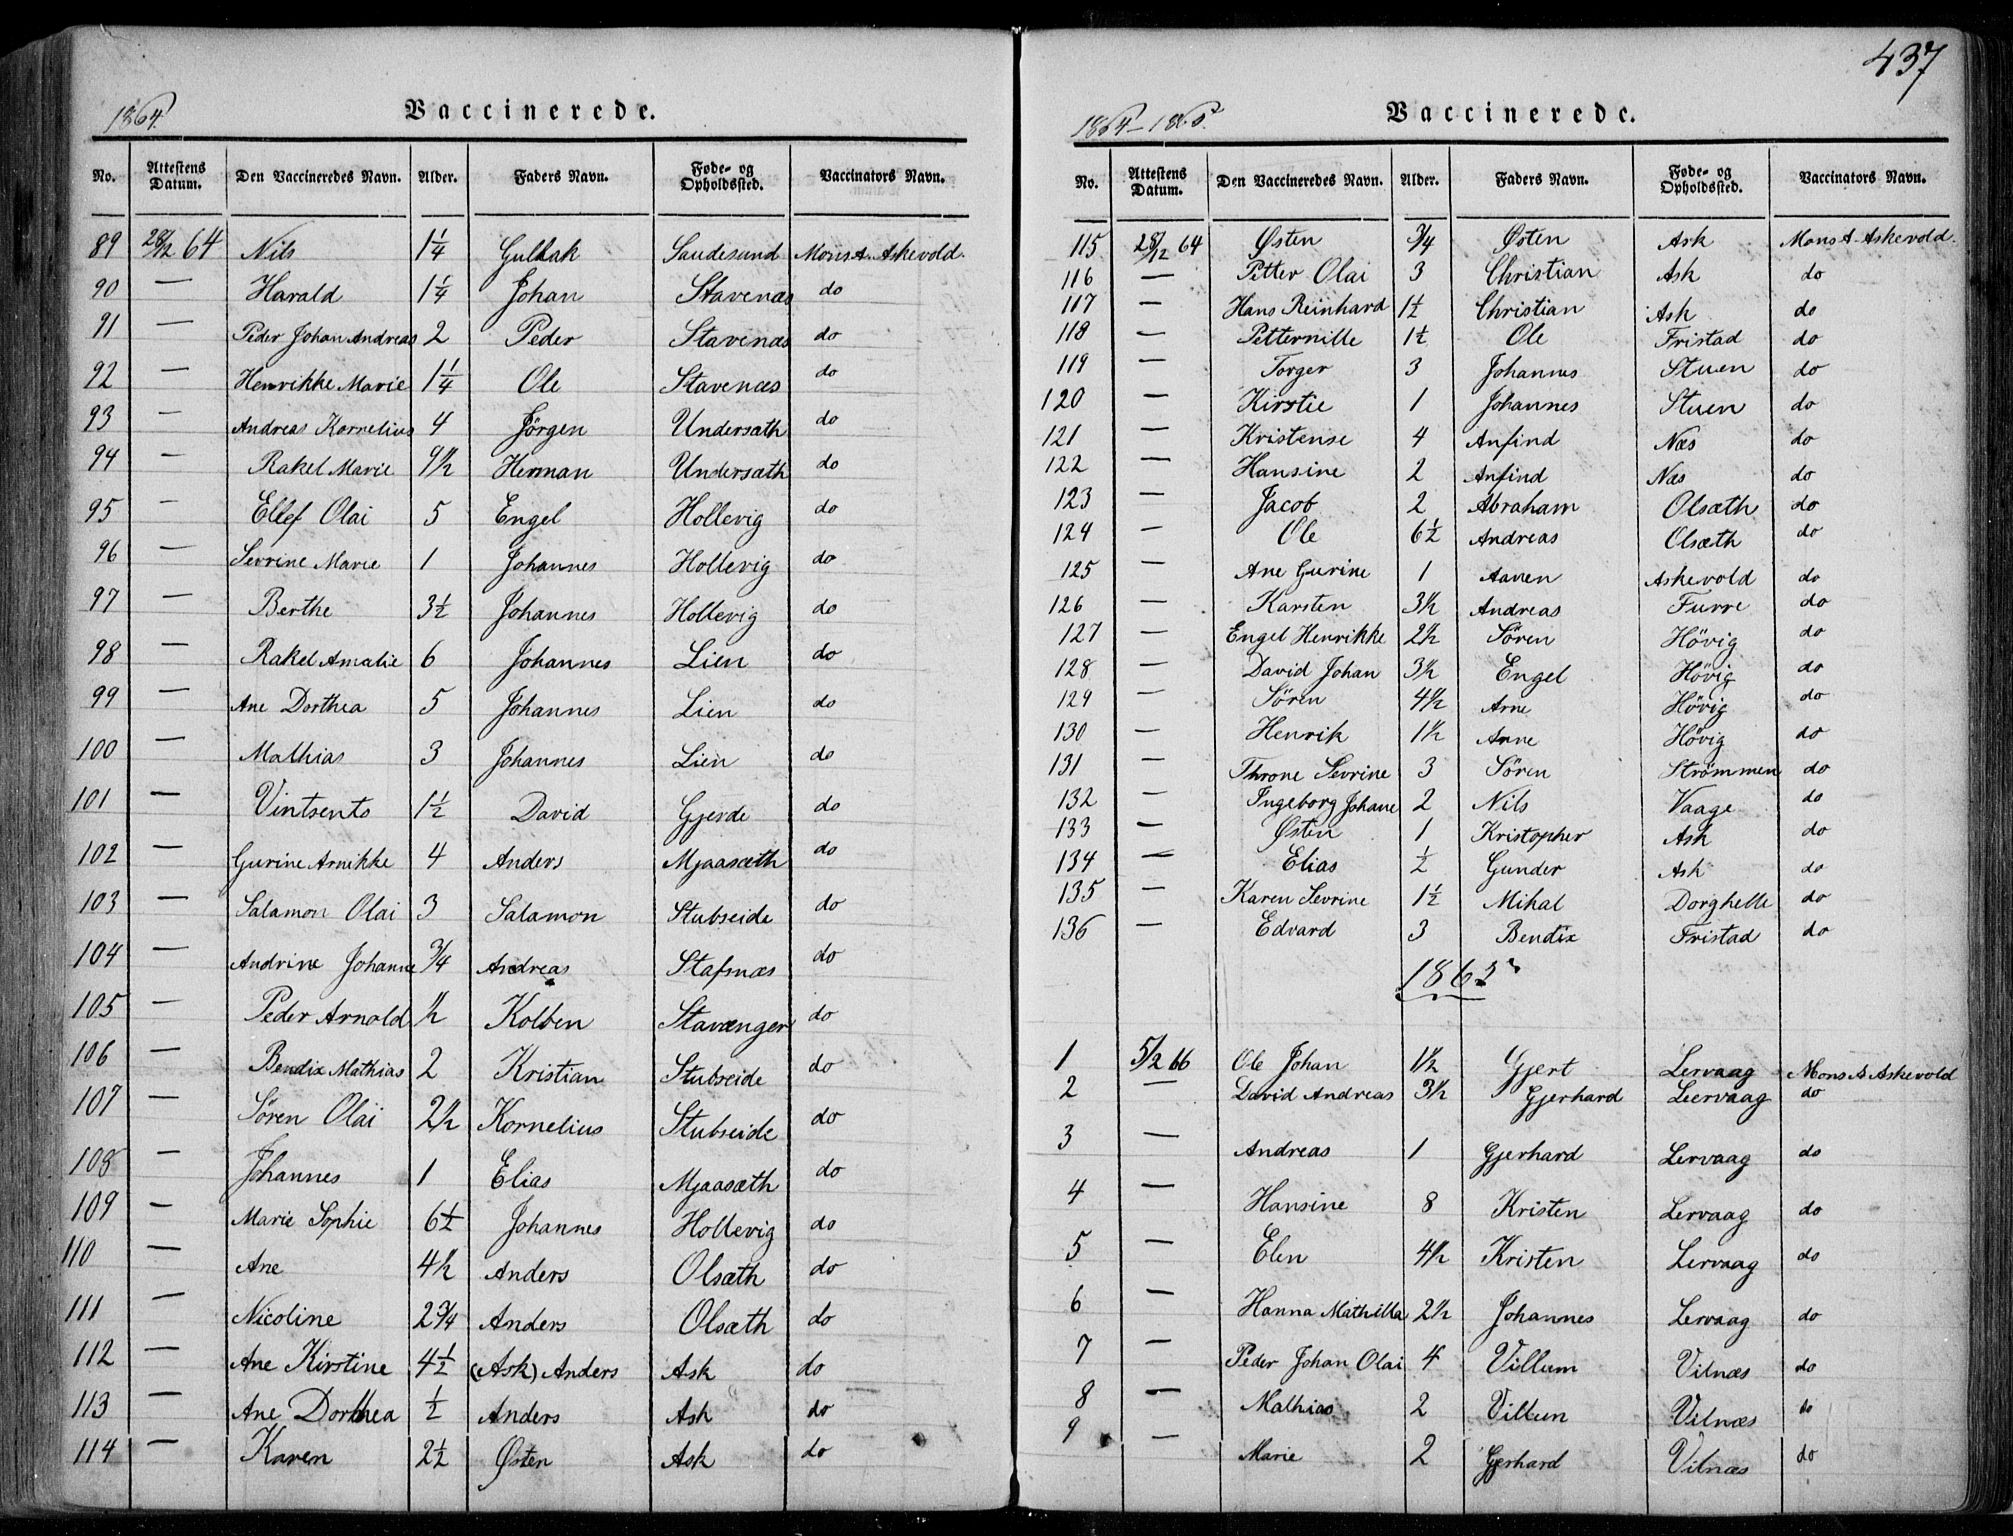 1864.
Vaccinerede.
No. Attestens Datum. Den Vaccineredes Navn. Alder. Faders Navn. Føde- og Opholdssted. Vaccinators Navn.
89 28/12 64 Nils 1 1/4 Gullak Saudesund Mons A. Askevold.
90 — Harald 1 1/4 Johan Stavenæs do
91 — Peder Johan Andreas 2 Peder Stavenæs do
92 — Henrikke Marie 1 1/4 Ole Stavenæs do
93 — Andreas Kornelius 4 Jörgen Undersæth do
94 — Rakel Marie 9 1/2 Herman Undersæth do
95 — Ellef Olai 5 Engel Hollevig do
96 — Sevrine Marie 1 Johannes Hollevig do
97 — Berthe 3 1/2 Johannes Hollevig do
98 — Rakel Amalie 6 Johannes Lien do
99 — Ane Dorthea 5 Johannes Lien do
100 — Mathias 3 Johannes Lien do
101 — Vintsents 1 1/2 David Gjerde do
102 — Gurine Arnikke 4 Anders Mjaasæth do
103 — Salamon Olai 3 Salamon Stubseide do
104 — Andrine Johanne 3/4 Andreas Stafsnæs do
105 — Peder Arnold 1/2 Kolben Stavænger do
106 — Bendix Mathias 2 Kristian Stubseide do
107 — Sören Olai 2 1/2 Kornelius Stubseide do
108 — Johannes 1 Elias Mjaasæth do
109 — Marie Sophie 6 1/2 Johannes Hollevig do
110 — Ane 4 1/2 Anders Olsæth do
111 — Nicoline 2 3/4 Anders Olsæth do
112 — Ane Kirstine 4 1/2 (Ask) Anders Ask do
113 — Ane Dorthea 1/2 Anders Ask do
114 — Karen 2 1/2 Østen Ask do
437
1864-1865.
Vaccinerede.
No. Attestens Datum. Den Vaccineredes Navn. Alder. Faders Navn. Føde- og Opholdssted. Vaccinators Navn.
115 28/12 64 Østen 3/4 Østen Ask Mons A. Askevold.
116 — Petter Olai 3 Christian Ask do
117 — Hans Reinhard 1 1/2 Christian Ask do
118 — Petternille 1 1/2 Ole Fristad do
119 — Torger 3 Johannes Stuen do
120 — Kirstie 1 Johannes Stuen do
121 — Kristense 4 Anfind Næs do
122 — Hansine 2 Anfind Næs do
123 — Jacob 2 Abraham Olsæth do
124 — Ole 6 1/2 Andreas Olsæth do
125 — Ane Gurine 1 Aanen Askevold do
126 — Karsten 3 1/2 Andreas Furre do
127 — Engel Henrikke 2 1/2 Sören Hövig do
128 — David Johan 3 1/2 Engel Hövig do
129 — Sören 4 1/2 Arne Hövig do
130 — Henrik 1 1/2 Arne Hövig do
131 — Throne Sevrine 3 Sören Strömmen do
132 — Ingeborg Johane 2 Nils Vaage do
133 — Østen 1 Kristopher Ask do
134 — Elias 1/2 Gunder Ask do
135 — Karen Sevrine 1 1/2 Mihal Dorghelle do
136 — Edvard 3 Bendix Fristad do
1865
1 5/2 66 Ole Johan 1 1/2 Gjert Lervaag Mons A Askevold
2 — David Andreas 3 1/2 Gjerhard Leervaag do
3 — Andreas 1 Gjerhard Lervaag do
4 — Hansine 8 Kristen Lervaag do
5 — Elen 4 1/2 Kristen Lervaag do
6 — Hanna Mathilla 2 1/2 Johannes Lervaag do
7 — Peder Johan Olai 4 Villum Vilnæs do
8 — Mathias 2 Villum Vilnæs do
9 — Marie 2 Gjerhard Vilnæs do